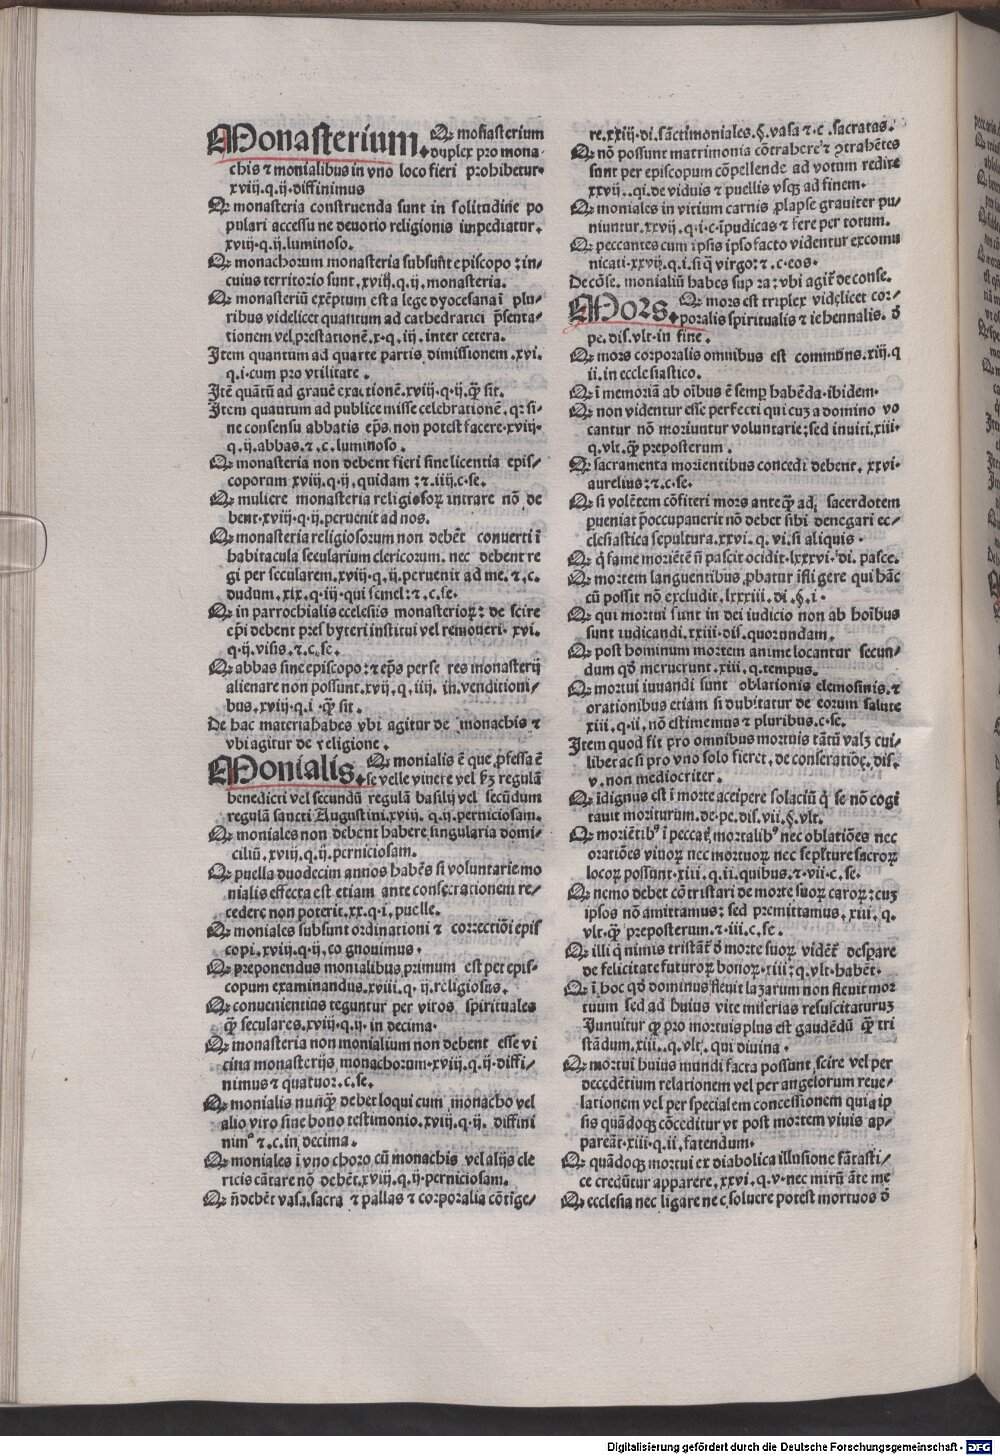 Monasterium. Qꝛ monasterium
duplex pro mona-
chis ⁊ monialibus in vno loco fieri prohibetur.
xviij.q.ij.diffinimus
Qꝛ monasteria construenda sunt in solitudine po
pulari accessu ne deuotio religionis impediatur.
xviij.q.ij.luminoso.
Qꝛ monachorum monasteria subsunt episcopo: in/
cuius territorio sunt.xviij.q.ij.monasteria.
Qꝛ monasteriū exēptum est a lege dyocesana ī plu/
ribus videlicet quantum ad cathedratici p̄senta/
tionem vel prestationē.x.q.iij.inter cetera.
Item quantum ad quarte partis dimissionem.xvi.
q.i.cum pro vtilitate.
Itē quātū ad grauē exactionē.xviij.q.ij.q̄ sit.
Item quantum ad publice misse celebrationē.qꝛ si/
ne consensu abbatis ep̄s non potest facere.xviij.
q.ij.abbas.⁊.c.luminoso.
Qꝛ monasteria non debent fieri sine licentia epis/
coporum xviij.q.ij.quidam:⁊.iiij.c.se.
Qꝛ muliere monasteria religiosoꝝ intrare nō de
bent.xviij.q.ij.peruenit ad nos.
Qꝛ monasteria religiosorum non debēt conuerti ī
habitacula secularium clericorum. nec debent re
gi per secularem.xviij.q.ij.peruenit ad me.⁊.c.
dudum.xix.q.iij.qui semel:⁊.c.se.
Qꝛ in parrochialis ecclesiis monasterioꝝ: de scire
ep̄i debent presbyteri institui vel remoueri.xvi.
q.ij.visis.⁊.c.se.
Qꝛ abbas sine episcopo:⁊ ep̄s per se res monasterij
alienare non possunt.xvij.q.iiij.in venditioni/
bus.xviij.q.i.q̄ sit.
De hac materia habes vbi agitur de monachis ⁊
vbi agitur de religione.
Monialis. Qꝛ monialis ē que ꝓfessa ē
se velle viuere vel s̄ꝫ regulā
benedicti vel secundū regulā basilij vel secūdum
regulā sancti Augustini.xviij.q.ij.perniciosam.
Qꝛ moniales non debent habere singularia domi/
ciliū.xviij.q.ij.perniciosam.
Qꝛ puella duodecim annos habēs si voluntarie mo
nialis effecta est etiam ante consecrationem re/
cedere non poterit.xx.q.i.puelle.
Qꝛ moniales subsunt ordinationi ⁊ correctiōi epis
copi.xviij.q.ij.eo gnouimus.
Qꝛ preponendus monialibus primum est per epis-
copum examinandus.xviij.q.ij.religiosus.
Qꝛ conuenientius teguntur per viros spirituales
q̄ seculares.xviij.q.ij.in decima.
Qꝛ monasteria non monialium non debent esse vi
cina monasterijs monachorum.xviij.q.ij.diffi/
nimus ⁊ quatuor.c.se.
Qꝛ monialis nunq̄ debet loqui cum monacho vel
alio viro sine bono testimonio.xviij.q.ij.diffini
nimꝰ ⁊.c.in decima.
Qꝛ moniales ī vno choro cū monachis vel alijs cle
ricis cātare nō debēt.xviij.q.ij.perniciosam.
Qꝛ n̄ debēt vasa sacra ⁊ pallas ⁊ corporalia cōtige/
re.xxiij.di.sāctimoniales.§.vasa ⁊.c.sacratas.
Qꝛ nō possunt matrimonia cōtrahere ⁊ ꝯtrahētes
sunt per episcopum cōpellende ad votum redire
xxvij.q.i.de viduis ⁊ puellis vsqꝫ ad finem.
Qꝛ moniales in vitium carnis ꝓlapse grauiter pu/
niuntur.xxvij.q.i.c.īpudicas ⁊ fere per totum.
Qꝛ peccantes cum ipsis ipso facto videntur excomu
nicati.xxvij.q.i.si q̄ virgo:⁊.c.eos.
De cōse. monialiū habes supra: vbi agit̄ de conse.
Mors. Qꝛ mors est triplex videlicet cor/
poralis spiritualis ⁊ iehennalis. ꝺ
pe.dis.vlt.in fine.
Qꝛ mors corporalis omnibus est communs.xiij.q
ii.in ecclesiastico.
Qꝛ ī memoriā ab oībus ē semꝑ habēda.ibidem.
Qꝛ non videntur esse perfecti qui cuꝫ a domino vo
cantur nō moriuntur voluntarie; sed inuiti.xiii.
q.vlt.q̄ preposterum.
Qꝛ sacramenta morientibus concedi debent.xxvi.
aurelius:⁊.c.se.
Qꝛ si volētem cōfiteri mors anteq̄ adi sacerdotem
ꝑueniat p̄occupauerit nō debet sibi denegari ec/
clesiastica sepultura.xxvi.q.vi.si aliquis.
Qꝛ q̄ fame moriētē n̄ pascit ocidit.lxxxvi.di.pasce.
Qꝛ mortem languentibus ꝓbatur īfligere qui hāc
cū possit nō excludit.lxxxiii.di.§.i.
Qꝛ qui mortui sunt in dei iudicio non ab hoībus
sunt iudicandi.xxiii.dis.quorundam.
Qꝛ post hominum mortem anime locantur secun/
dum qd̄ meruerunt.xiii.q.tempus.
Qꝛ mortui iuuandi sunt oblationis elemosinis.⁊
orationibus etiam si dubitatur de eorum salute
xiii.q.ii.nō estimemus ⁊ pluribus.c.se.
Item quod fit pro omnibus mortuis tātū valꝫ cui/
libet ac si pro vno solo fieret.de conseratiōe.dis.
v.non mediocriter.
Qꝛ īdignus est ī morte accipere solaciū q̄ se nō cogi
tauit moriturum.de.pe.dis.vii.§.vlt.
Qꝛ moriētibꝰ ī peccat̄ mortalibꝰ nec oblatiōes nec
oratiōes viuoꝝ nec mortuoꝝ nec sepl̄ture sacroꝝ
locoꝝ possunt.xiii.q.ii.quibus.⁊.vii.c.se.
Qꝛ nemo debet cōtristari de morte suoꝝ caroꝝ: cuꝫ
ipsos nō amittamus: sed premittamus.xiii.q.
vlt.q̄ preposterum.⁊.iii.c.se.
Qꝛ illi q̄ nimis tristāt̄ ꝺ morte suoꝝ vidēt̄ despare
de felicitate futuroꝝ bonoꝝ.xiii:q.vlt.habēt.
Qꝛ ī hoc qd̄ dominus fleuit lazarum non fleuit mor
tuum sed ad huius vite miserias resuscitaturuꝫ
Innuitur q̄ pro mortuis plus est gaudēdū q̄ tri
stādum.xiii.q.vlt.qui diuina.
Qꝛ mortui huius mundi facta possunt scire vel per
decedētium relationem vel per angelorum reue/
lationem vel per specialem concessionem quia ip
sis quādoqꝫ cōceditur vt post mortem viuis ap/
pareāt.xiii.q.ii.fatendum.
Qꝛ quādoqꝫ mortui ex diabolica illusione fātasti/
ce credūtur apparere.xxvi.q.v.nec mirū āte me
Qꝛ ecclesia nec ligare nec soluere potest mortuos ꝺ
Digitalisierung gefördert durch die Deutsche Forschungsgemeinschaft - DFG